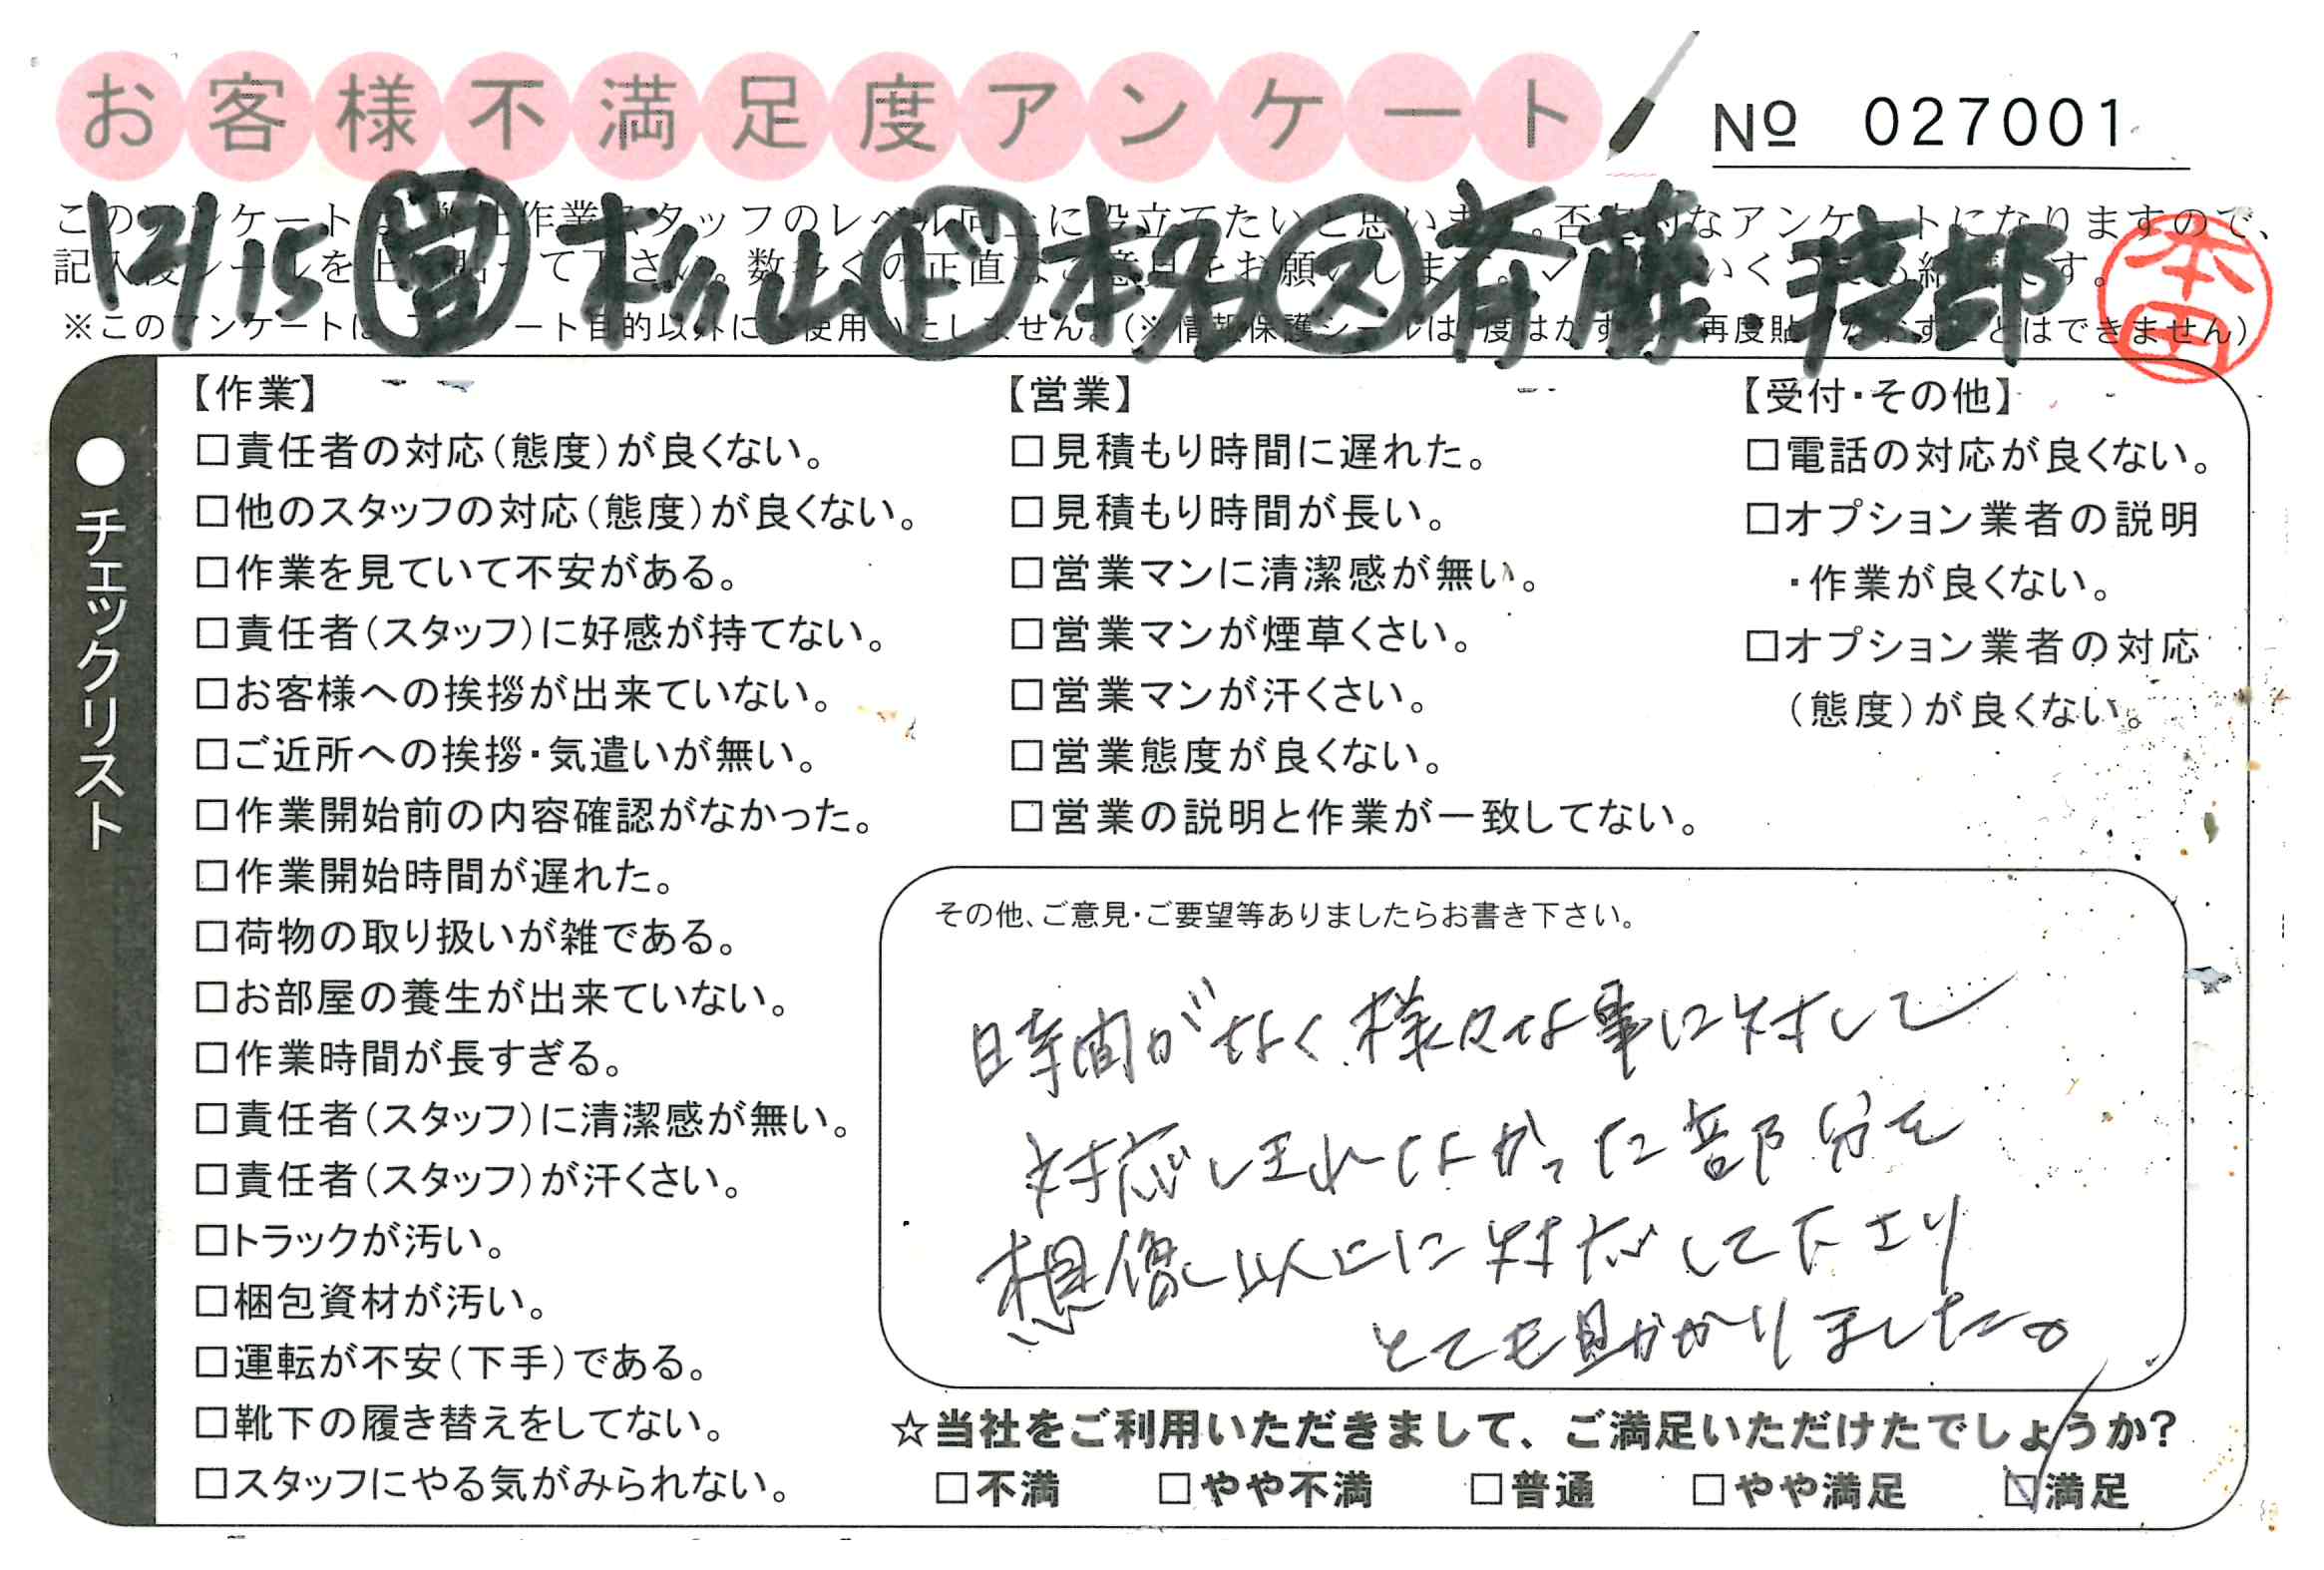 お客様不満足度アンケート
№ 027001
12/15 営 杉山 ド 本名 ス 斉藤 渡部
本田
※このアンケートは、アンケート目的以外に使用いたしません。(※情報保護シールは1度はがすと、再度貼りなおすことはできません)
●チェックリスト
【作業】
□責任者の対応(態度)が良くない。
□他のスタッフの対応(態度)が良くない。
□作業を見ていて不安がある。
□責任者(スタッフ)に好感が持てない。
□お客様への挨拶が出来ていない。
□ご近所への挨拶・気遣いが無い。
□作業開始前の内容確認がなかった。
□作業開始時間が遅れた。
□荷物の取り扱いが雑である。
□お部屋の養生が出来ていない。
□作業時間が長すぎる。
□責任者(スタッフ)に清潔感が無い。
□責任者(スタッフ)が汗くさい。
□トラックが汚い。
□梱包資材が汚い。
□運転が不安(下手)である。
□靴下の履き替えをしてない。
□スタッフにやる気がみられない。
【営業】
□見積もり時間に遅れた。
□見積もり時間が長い。
□営業マンに清潔感が無い。
□営業マンが煙草くさい。
□営業マンが汗くさい。
□営業態度が良くない。
□営業の説明と作業が一致してない。
【受付・その他】
□電話の対応が良くない。
□オプション業者の説明
・作業が良くない。
□オプション業者の対応
(態度)が良くない。
その他、ご意見・ご要望等ありましたらお書き下さい。
時間がなく様々な事に対して
対応しきれなかった部分を
想像以上に対応して下さり
とても助かりました。
☆当社をご利用いただきまして、ご満足いただけたでしょうか?
□不満 □やや不満 □普通 □やや満足 ☑満足